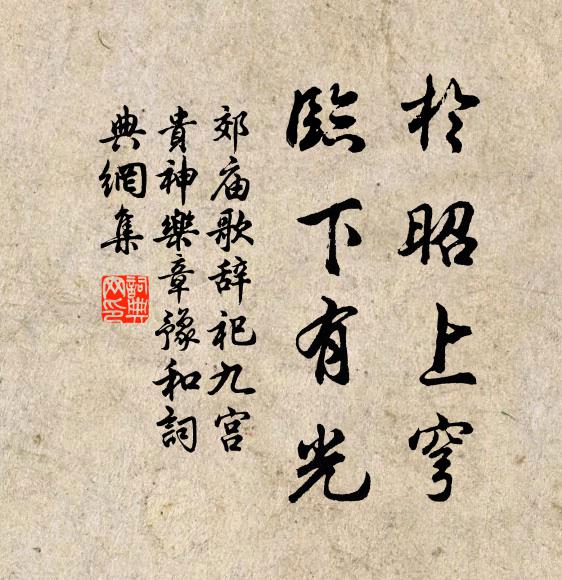 於昭上穹
臨下有光
郊庙歌辞祀九宫
貴神樂章豫和詞
典網集
詞典
网印